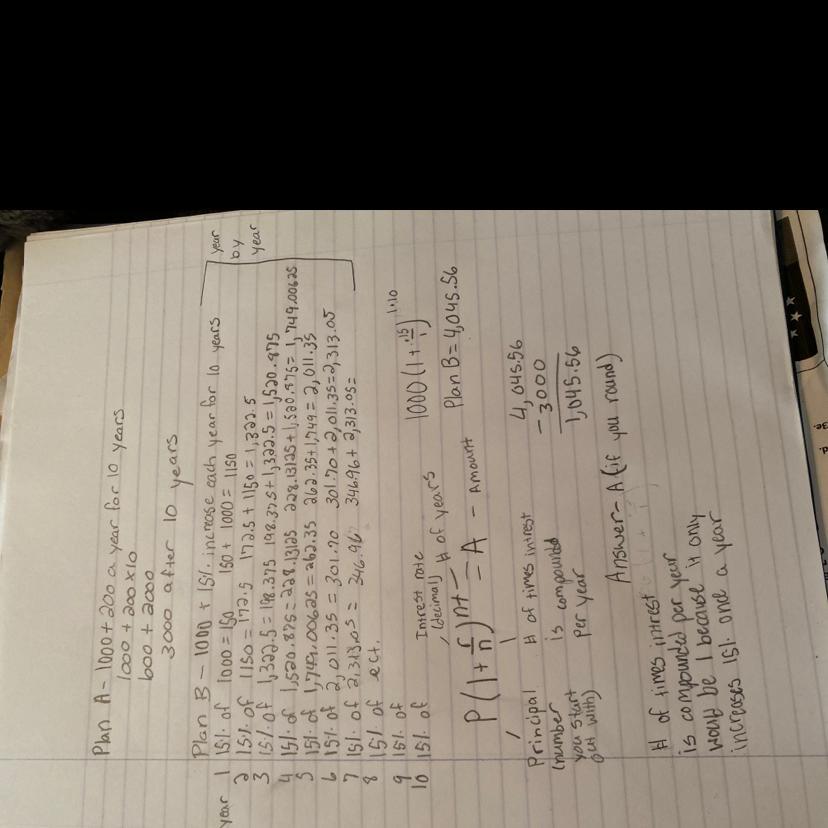 Plan A - 1000 + 200 a year for 10 years
1000 + 200 x 10
1000 + 2000
3000 after 10 years
Plan B - 1000 + 15% increase each year for 10 years
year by year
year 1 15% of 1000 = 150 150 + 1000 = 1150
2 15% of 1150 = 172.5 172.5 + 1150 = 1,322.5
3 15% of 1,322.5 = 198.375 198.375 + 1,322.5 = 1,520.875
4 15% of 1,520.875 = 228.13125 228.13125 + 1,520.875 = 1,749.00625
5 15% of 1,749.00625 = 262.35 262.35 + 1,749 = 2,011.35
6 15% of 2,011.35 = 301.70 301.70 + 2,011.35 = 2,313.05
7 15% of 2,313.05 = 346.96 346.96 + 2,313.05 =
8 15% of ect.
9 15% of
10 15% of
Intrest rate
(decimal) # of years
P(1 + r/n)nt = A - Amount
1000(1 + .15/1)1·10
Plan B = 4,045.56
Principal
(number
you start
out with)
# of times intrest
is compounded
per year
4,045.56
- 3000
1,045.56
Answer - A (if you round)
# of times intrest
is compounded per year
would be 1 because it only
increases 15% once a year